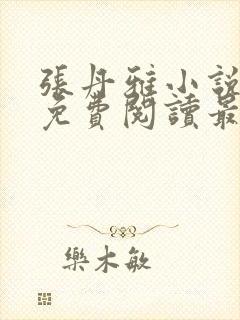 張丹雅小說
免費閱讀最
樂木敏